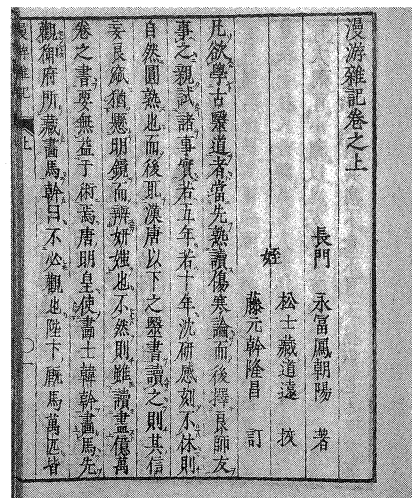 漫游雜記卷之上
長門 永富鳳朝陽 著
松士藏道遠 挍
姪
藤元幹隆昌 訂
凡欲學古毉道者當先熟讀傷寒論而後擇良師友
事之親試諸事實若五年若十年沈研感刻不休則
自然圓熟也而後取漢唐以下之毉書讀之則其信
妄良窳猶懸明鏡而辨妍媸也不然則雖讀盡億萬
卷之書要無益于術焉唐明皇使畫士韓幹畫馬先
觀御府所藏畫馬幹曰不必觀也陛下厩馬萬匹皆
上